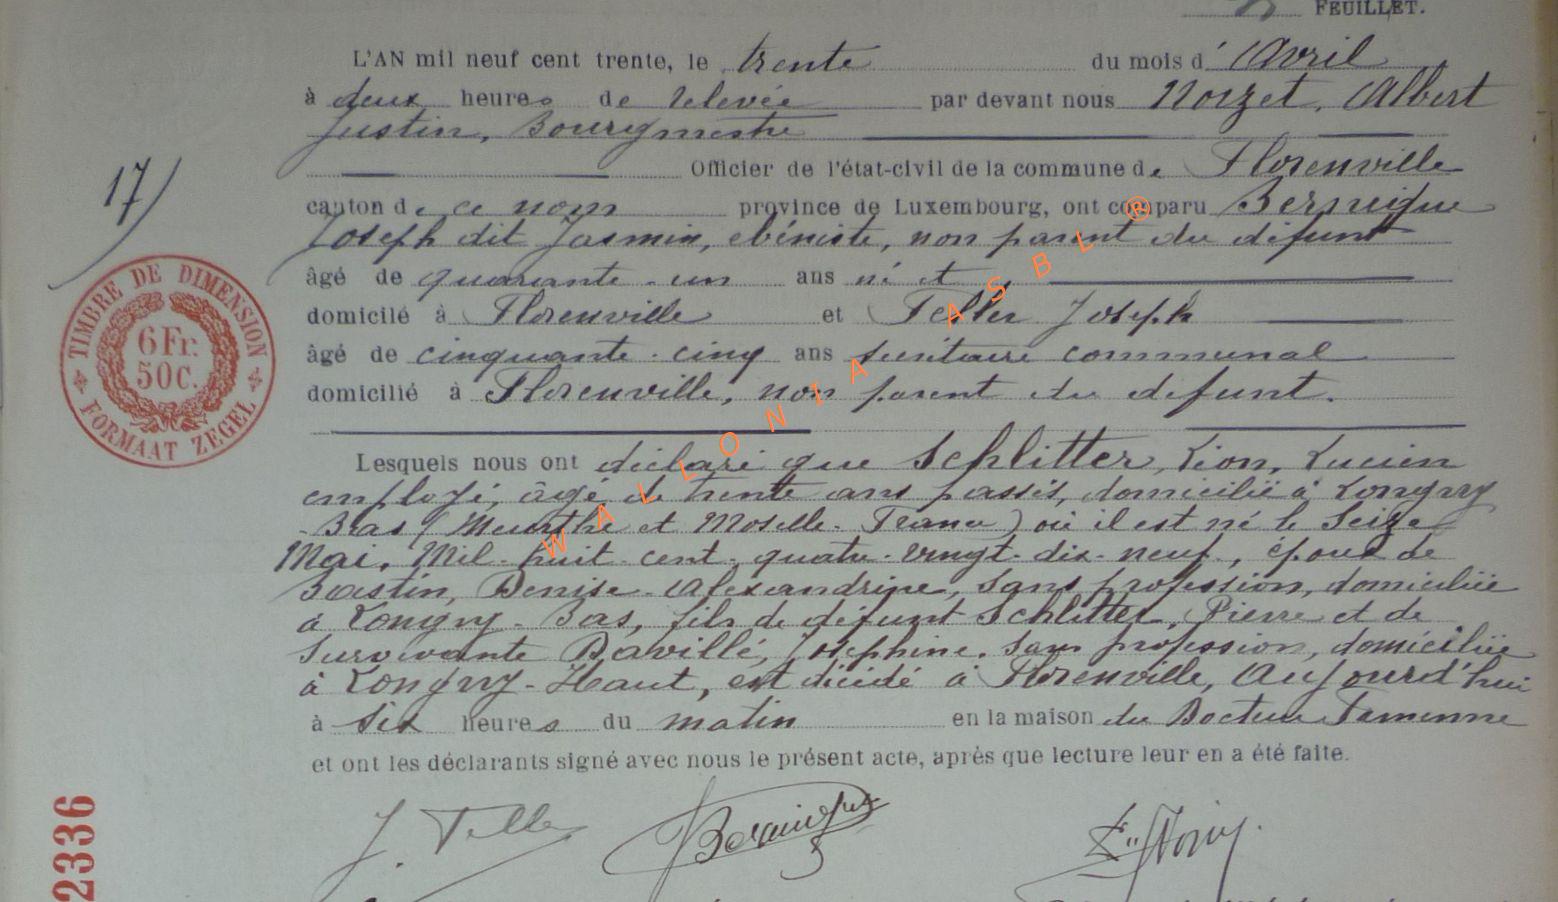 FEUILLET.
L'AN mil neuf cent trente, le trente du mois d' Avril
à deux heures de relevée par devant nous Noizet, Albert
Justin, Bourgmestre
Officier de l'état-civil de la commune de Florenville
17/
canton de ce nom province de Luxembourg, ont comparu Bernique
Joseph dit Jasmin, ebéniste, non parent du défunt
âgé de quarante-un ans né et
domicilé à Florenville et Feller Joseph
âgé de cinquante-cinq ans communal
domicilié à Florenville, non parent du defunt.
TIMBRE DE DIMENSION
6 Fr.
50 C.
FORMAAT ZEGEL
Lesquels nous ont déclaré que Schlitter, Léon, Lucien
employé, âgé de trente ans passés, domicilié à Longwy
-Bas (Meurthe et Moselle-France) où il est né le Seize
Mai, Mil-huit-cent-quatre-vingt-dix-neuf, époux de
Bastin, Denise-Alexandrine, sans profession, domiciliée
à Longwy-Bas, fils de défunt Schlitter, Pierre et de
Survivante Daville, Josephine, sans profession, domiciliée
à Longwy-Haut, est décédé à Florenville, Aujourd'hui
à six heures du matin en la maison du Docteur Famenne
et ont les déclarants signé avec nous le présent acte, après que lecture leur en a été faite.
J. Feller
2336
WALLONIA ASBL ®